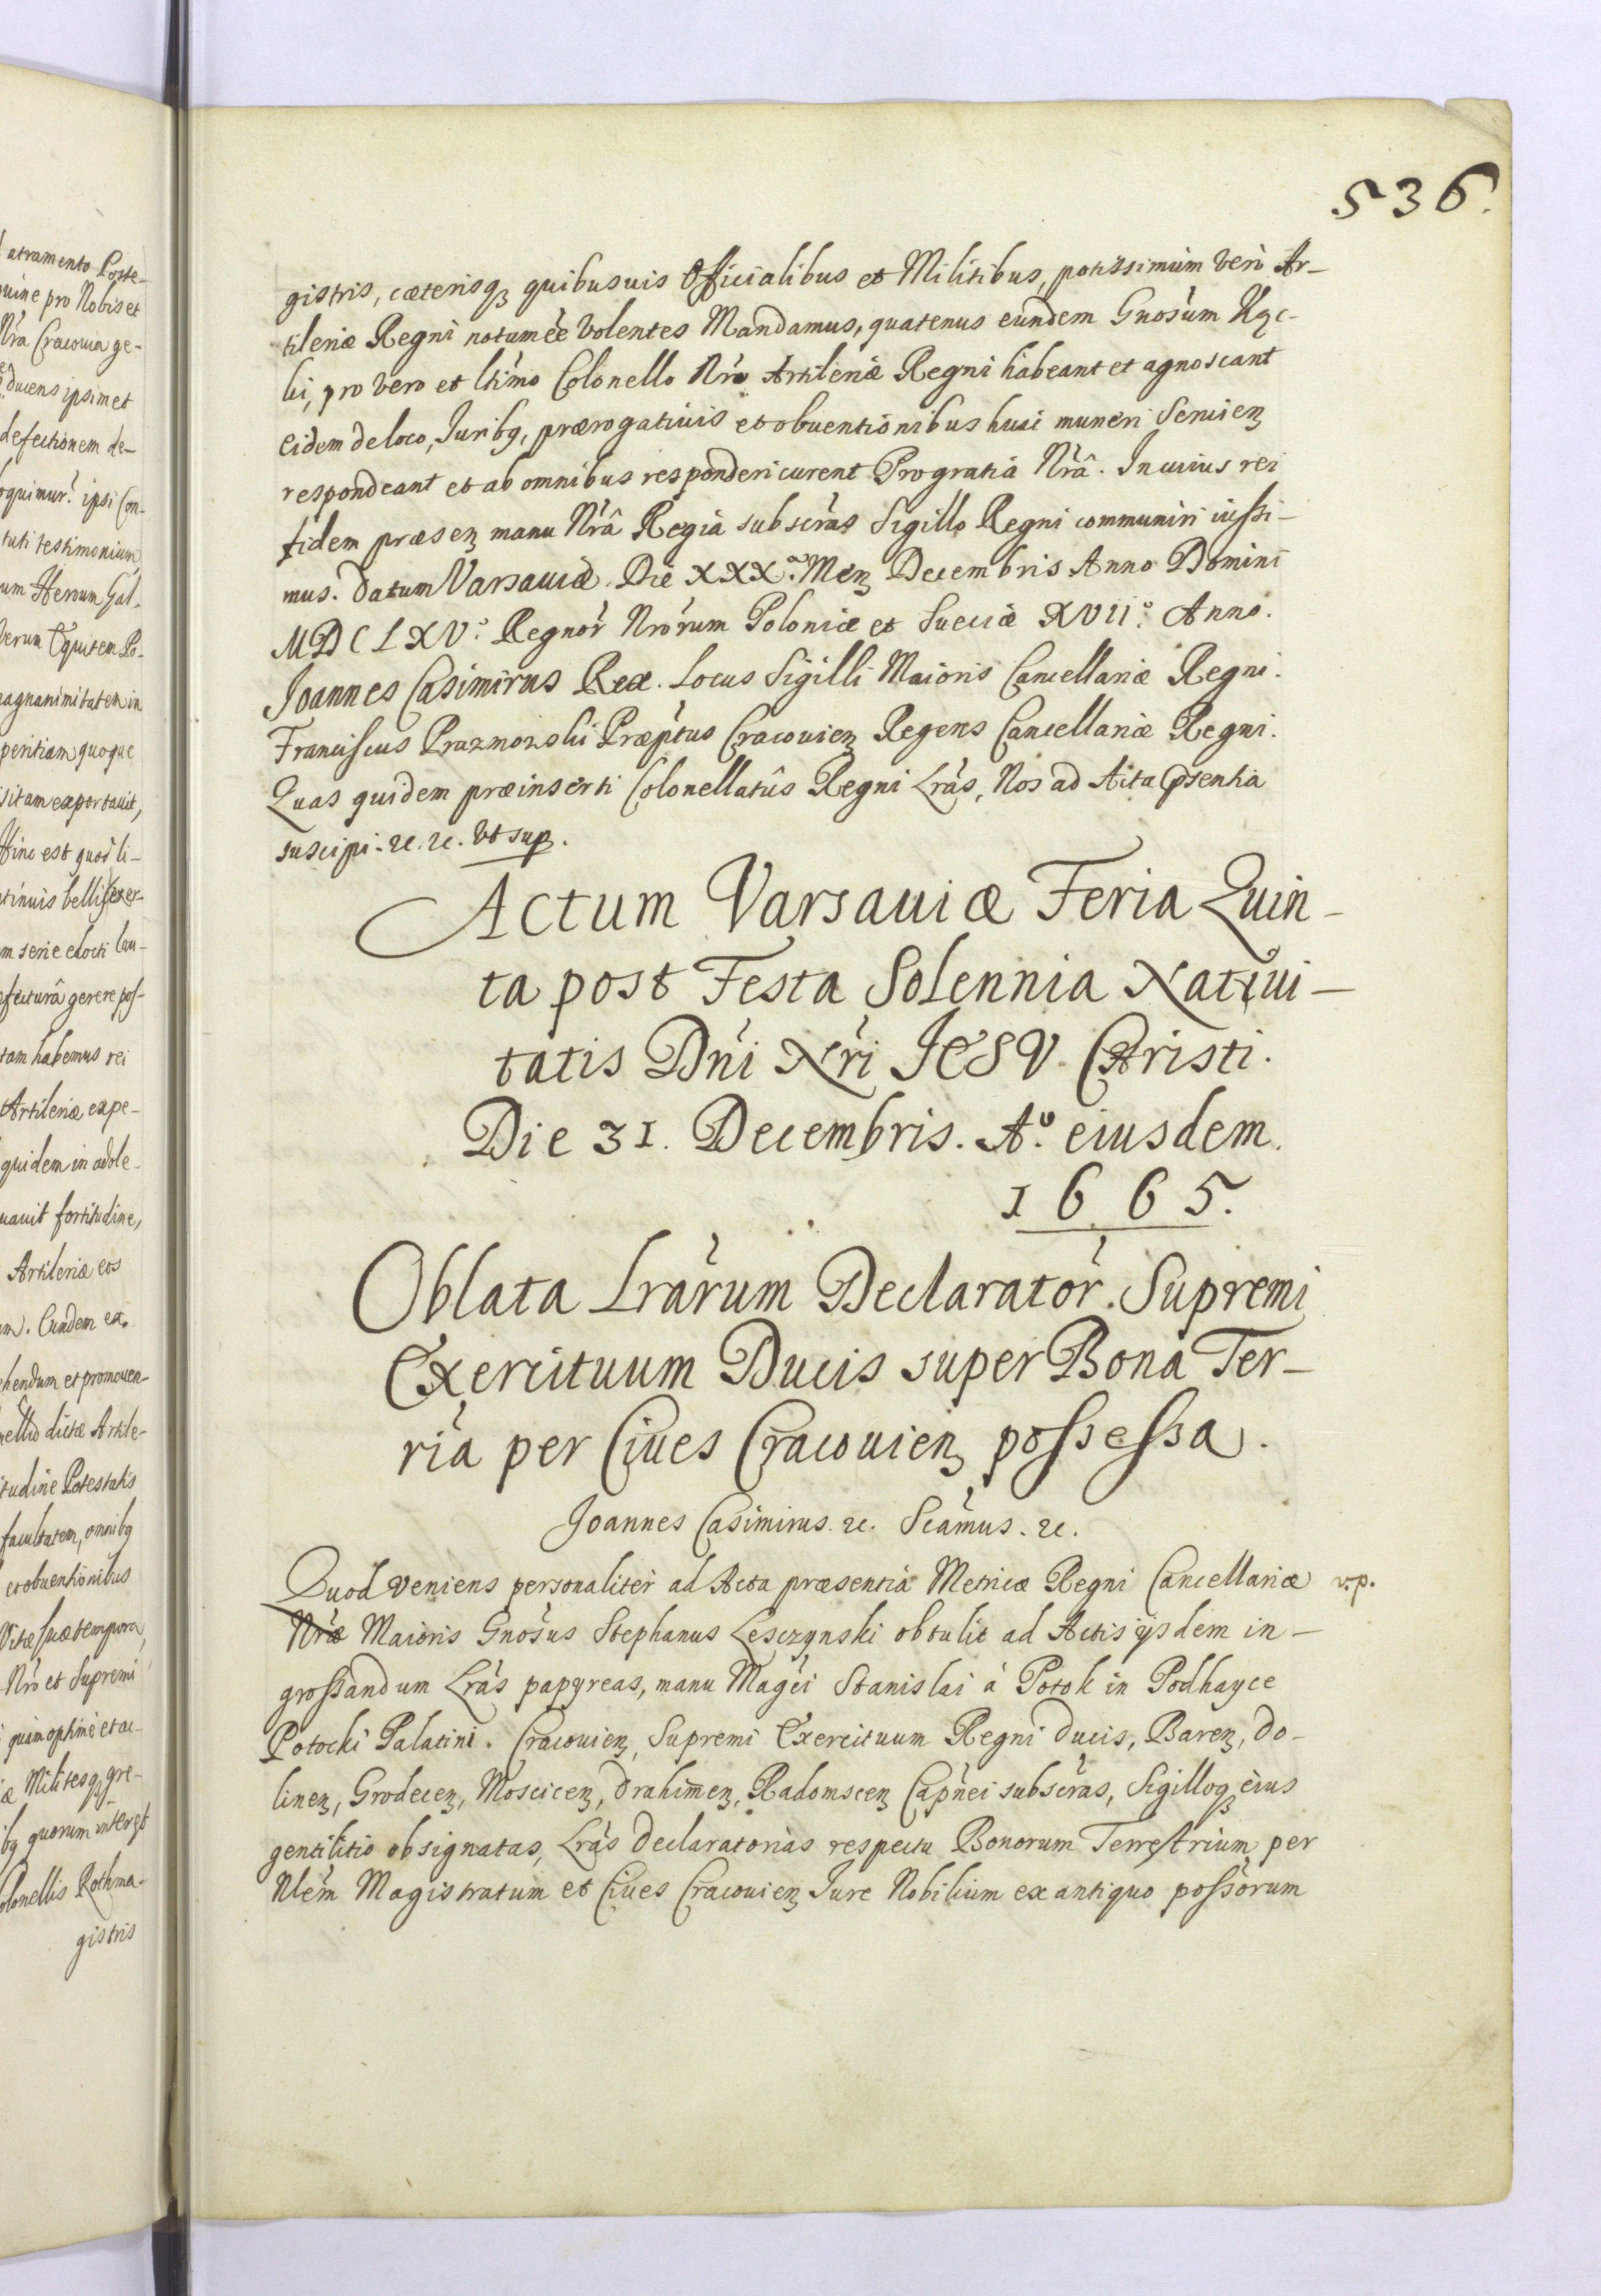 536.
gistris, cæterisq₃ quibusuis Officialibus et Militibus, potissimùm verò Ar-
tileriæ Regni notum èe volentes Mandamus, quatenus eundem Gnosum Kąc-
ki, pro vero et ltimo Colonello Nro Artileriæ Regni habeant et agnoscant
eidem de loco, Juribq, prærogatiuis et obuentionibus huic muneri Seruienʒ
respondeant et ab omnibus responderi curent Pro gratia Nrâ. In cuius rei
fidem præsenʒ manu Nrâ Regiâ subscras Sigillo Regni communiri iussi-
mus. Datum Varsauiæ. Die XXXa. Menʒ Decembris Anno Domini
MDCLXVo. Regnor Nrorum Poloniæ et Sueciæ XVIIo. Anno.
Joannes Casimirus Rex. Locus Sigilli Maioris Cancellariæ Regni.
Franciscus Prazmowski Præptus Cracouienʒ Regens Cancellariæ Regni.
Quas quidem præinserti Colonellatûs Regni Lras, Nos ad Acta Psentia
suscipi. &c. &c. vt sup.
Actum Varsauiæ Feria Quin-
ta post Festa Solennia Natiui-
tatis Dni Nri JESV Christi.
Die 31. Decembris. Ao. eiusdem.
1665.
Oblata Lrarum Declarator. Supremi
Exercituum Ducis super Bona Ter-
ria per Ciues Cracouienʒ possessa.
Joannes Casimirus. &c. Scamus. &c.
Quod veniens personaliter ad Acta præsentia Metricæ Regni Cancellariæ v.p.
Nræ Maioris Gnosus Stephanus Lesczynski obtulit ad Actis ijsdem in-
grossandum Lras papyreas, manu Magci Stanislai à Potok in Podhayce
Potocki Palatini. Cracouienʒ, Supremi Exercituum Regni Ducis, Barenʒ, Do-
linenʒ, Grodecenʒ, Moscicenʒ, Drahimenʒ, Radomscenʒ Capnei subscras, Sigilloq₃ eius
gentilitio obsignatas, Lras Declaratorias respectu Bonorum Terrestrium per
Nlem Magistratum et Ciues Cracouienʒ Jure Nobilium ex antiquo possorum
atramento Poste-
pro Nobis et
Nra Cracouia ge-
ducens ipsimet
defectionem de-
ipsi Con-
testimonium
Equitem Po-
agnanimitatem in
peritiam quoque
exportauit,
Hinc est quod li-
bellis exer-
m serie edocti lau-
gerere pos-
tam habemus rei
Artileriæ expe-
quidem in adole-
uauit fortitudine,
Artileriæ eos
Eundem ex,
et promouen-
dictæ Artile-
Potestatis
facultatem, omnibq
et obuentionibus
Vitæ suæ tempora,
Nro et Supremi
quam optimè et ac-
Militesq₃ gre-
quorum interest
Rothma-
gistris